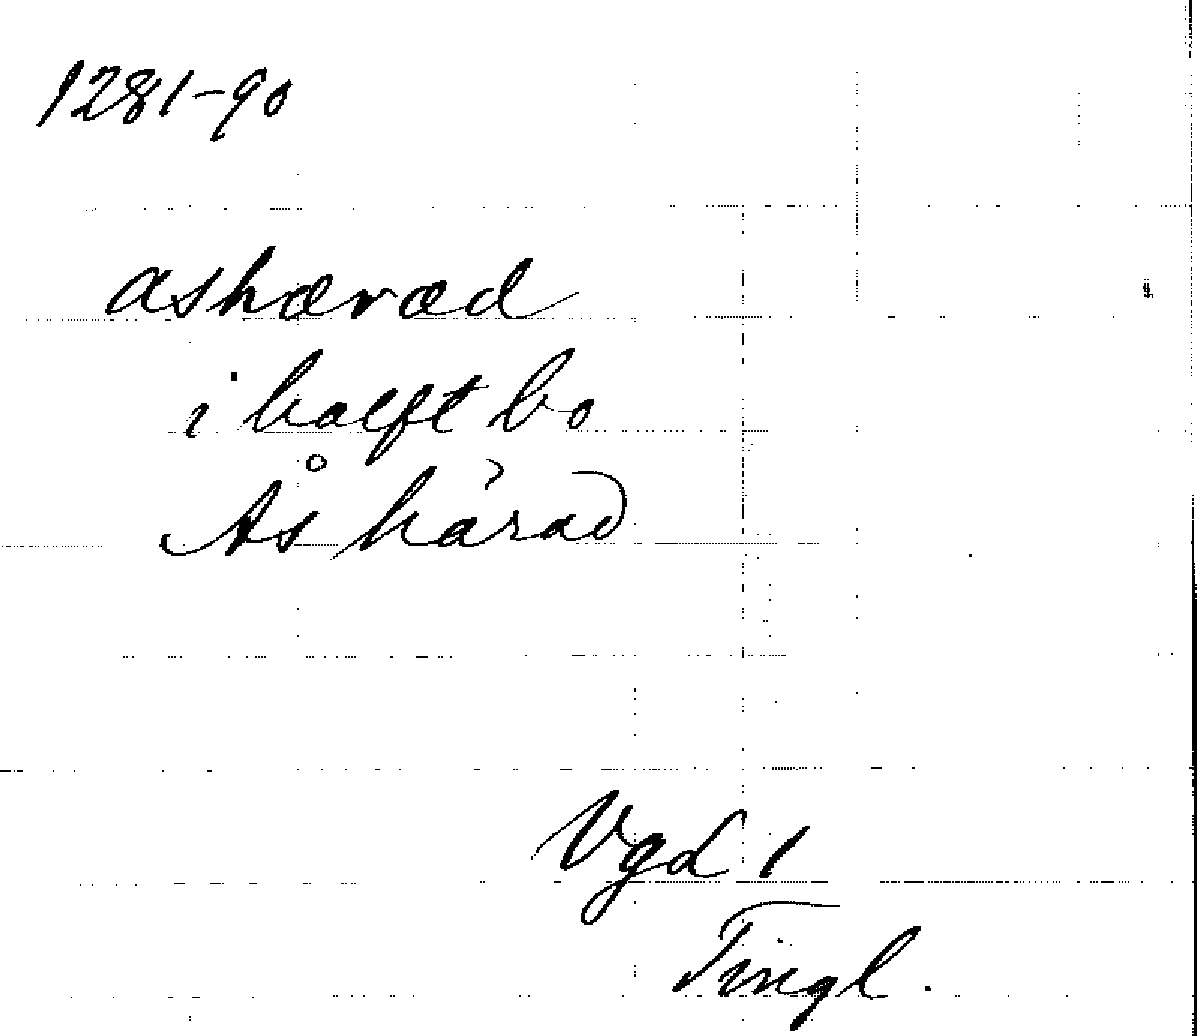 1281-90
ashæræd
i halft bo
Ås härad
Vgd 1
Tingl.